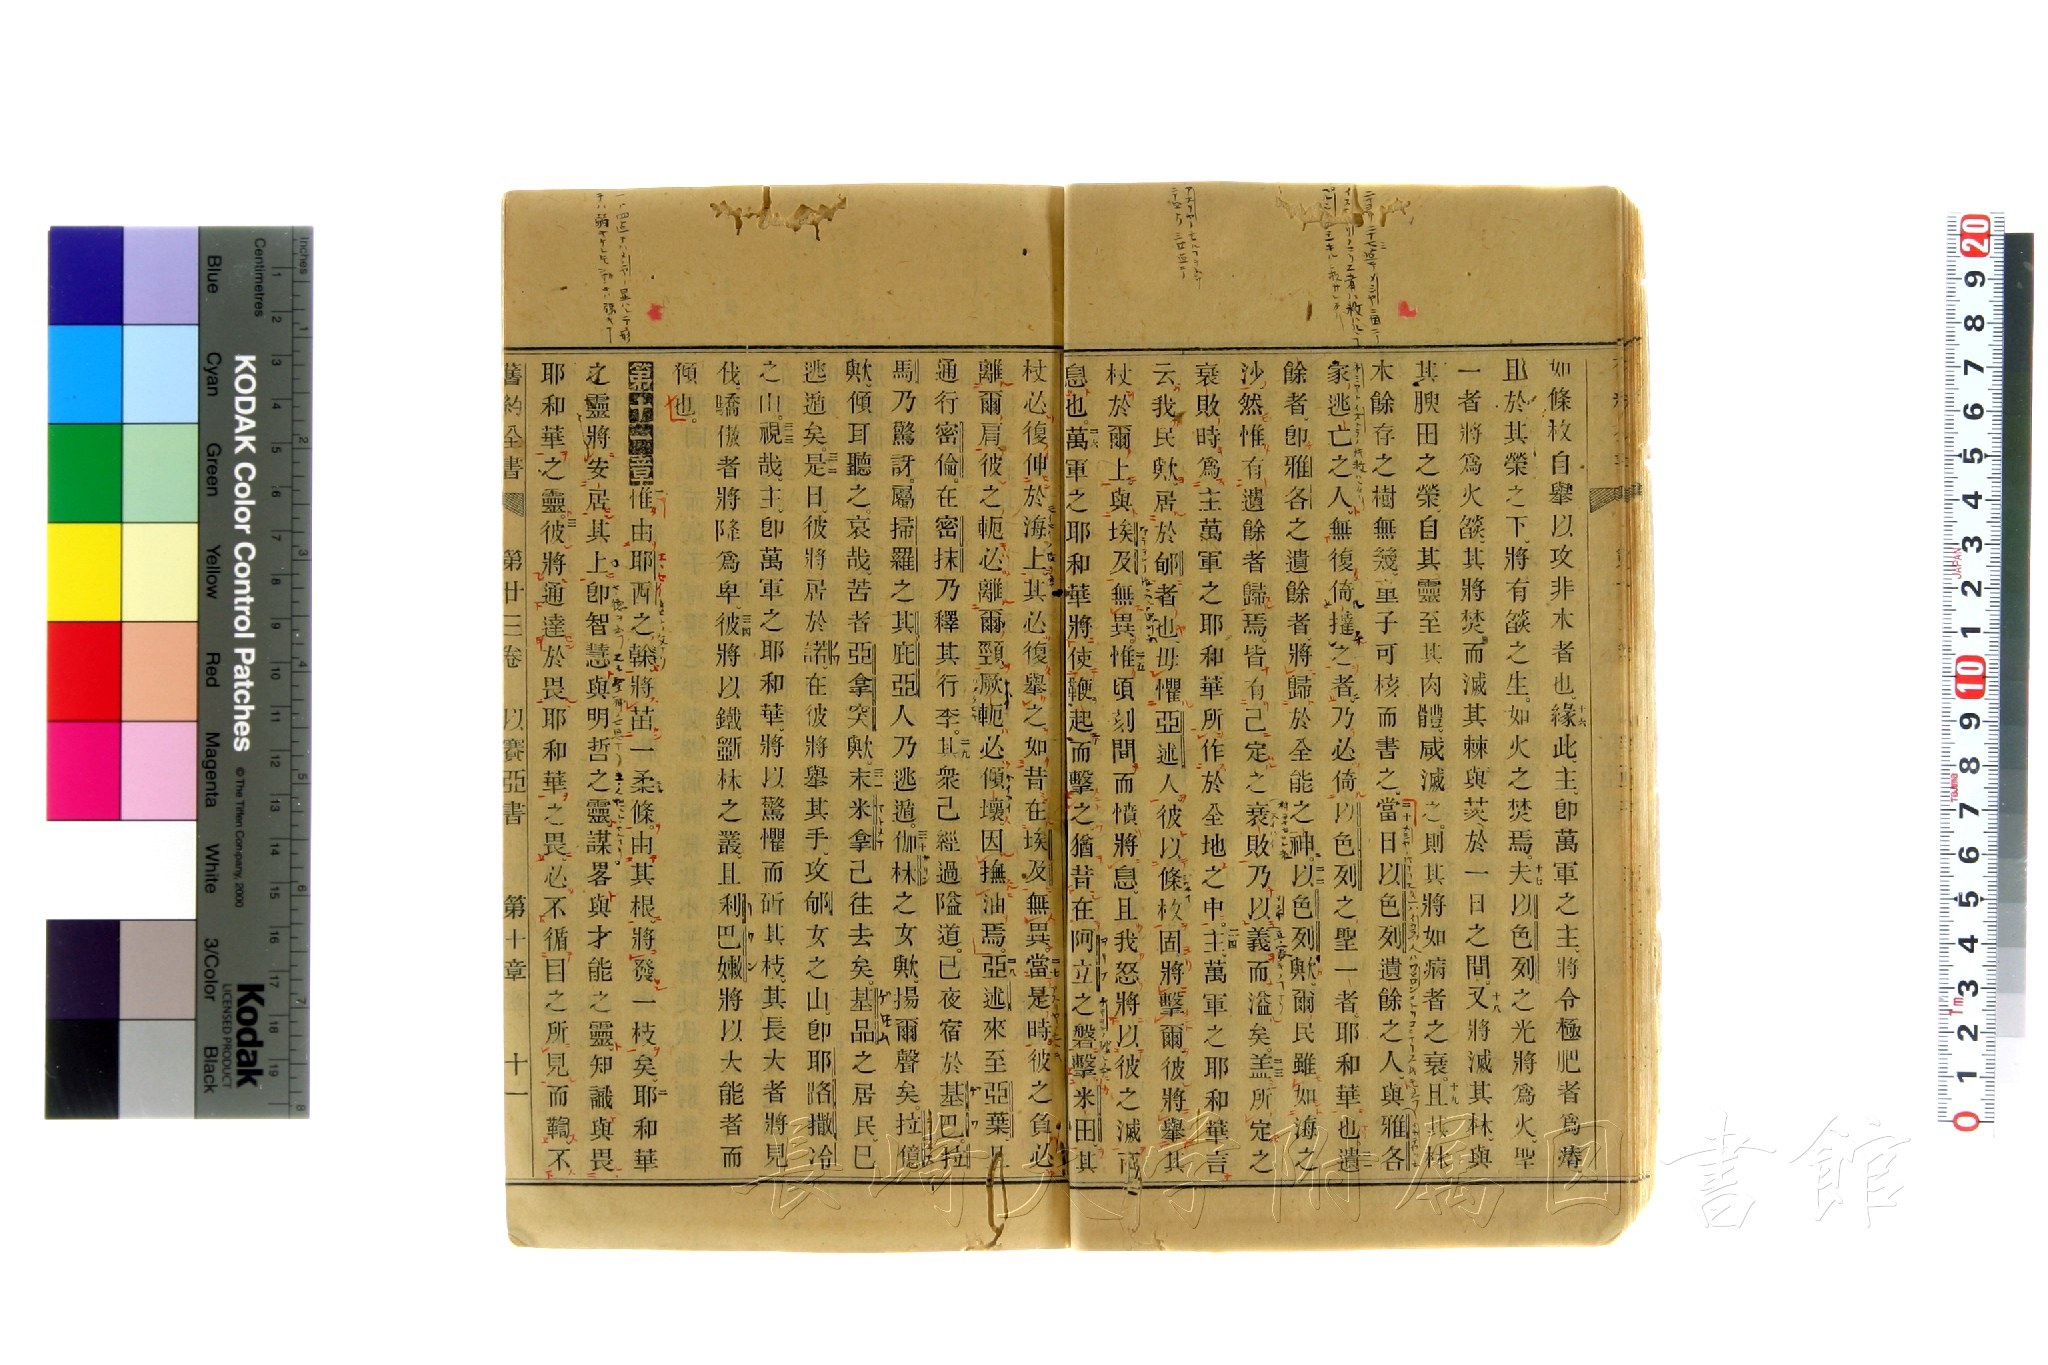 如條枚自舉以攻非木者也緣十六此主卽萬軍之主將令極肥者爲瘠
且於其榮之下將有燄之生如火之焚焉夫十七以色列之光將爲火聖
一者將爲火燄其將焚而滅其棘與茨於一日之間又十八將滅其林與
其腴田之榮自其靈至其肉體咸滅之則其將如病者之衰且十九其林
木餘存之樹無幾童子可核而書之當二十日以色列遺餘之人與雅各
家逃亡之人無復倚撻之者乃必倚以色列之聖一者耶和華也遺二一
餘者卽雅各之遺餘者將歸於全能之神以二二色列歟爾民雖如海之
沙然惟有遺餘者歸焉皆有已定之衰敗乃以義而溢矣蓋二三所定之
衰敗時爲主萬軍之耶和華所作於全地之中主二四萬軍之耶和華言
云我民歟居於郇者也毋懼亞述人彼以條枚固將擊爾彼將舉其
杖於爾上與埃及無異惟二五頃刻間而憤將息且我怒將以彼之滅而
息也萬二六軍之耶和華將使鞭起而擊之猶昔在阿立之磐擊米田其
杖必復伸於海上其必復舉之如昔在埃及無異當二七是時彼之負必
離爾肩彼之軛必離爾頸厥軛必傾壞因撫油焉亞二八述來至亞葉且
通行密倫在密抹乃釋其行李其二九衆已經過隘道已夜宿於基巴拉
馬乃驚訝屬掃羅之其庇亞人乃逃遁伽三十林之女歟揚爾聲矣拉億
歟傾耳聽之哀哉苦者亞拿突歟末三一米拿已往去矣基品之居民已
逃遁矣是三二日彼將居於諾在彼將舉其手攻郇女之山卽耶路撒冷
之山視三三哉主卽萬軍之耶和華將以驚懼而斫其枝其長大者將見
伐驕傲者將降爲卑彼三四將以鐵斵林之叢且利巴嫩將以大能者而
傾也
第十一章惟由耶西之榦將茁一柔條由其根將發一枝矣耶二和華
之靈將安居其上卽智慧與明哲之靈謀畧與才能之靈知識與畏
耶和華之靈彼三將通達於畏耶和華之畏必不循目之所見而鞫不
舊約全書 第廿三卷 以賽亞書 第十章 十一
inches
Centimetres
KODAK Color Control Patches
© The Tiffen Company, 2000
Kodak
LICENSED PRODUCT
Blue
Cyan
Green
Yellow
Red
Magenta
White
3/Color
Black
JAPAN
長崎大学附属図書館